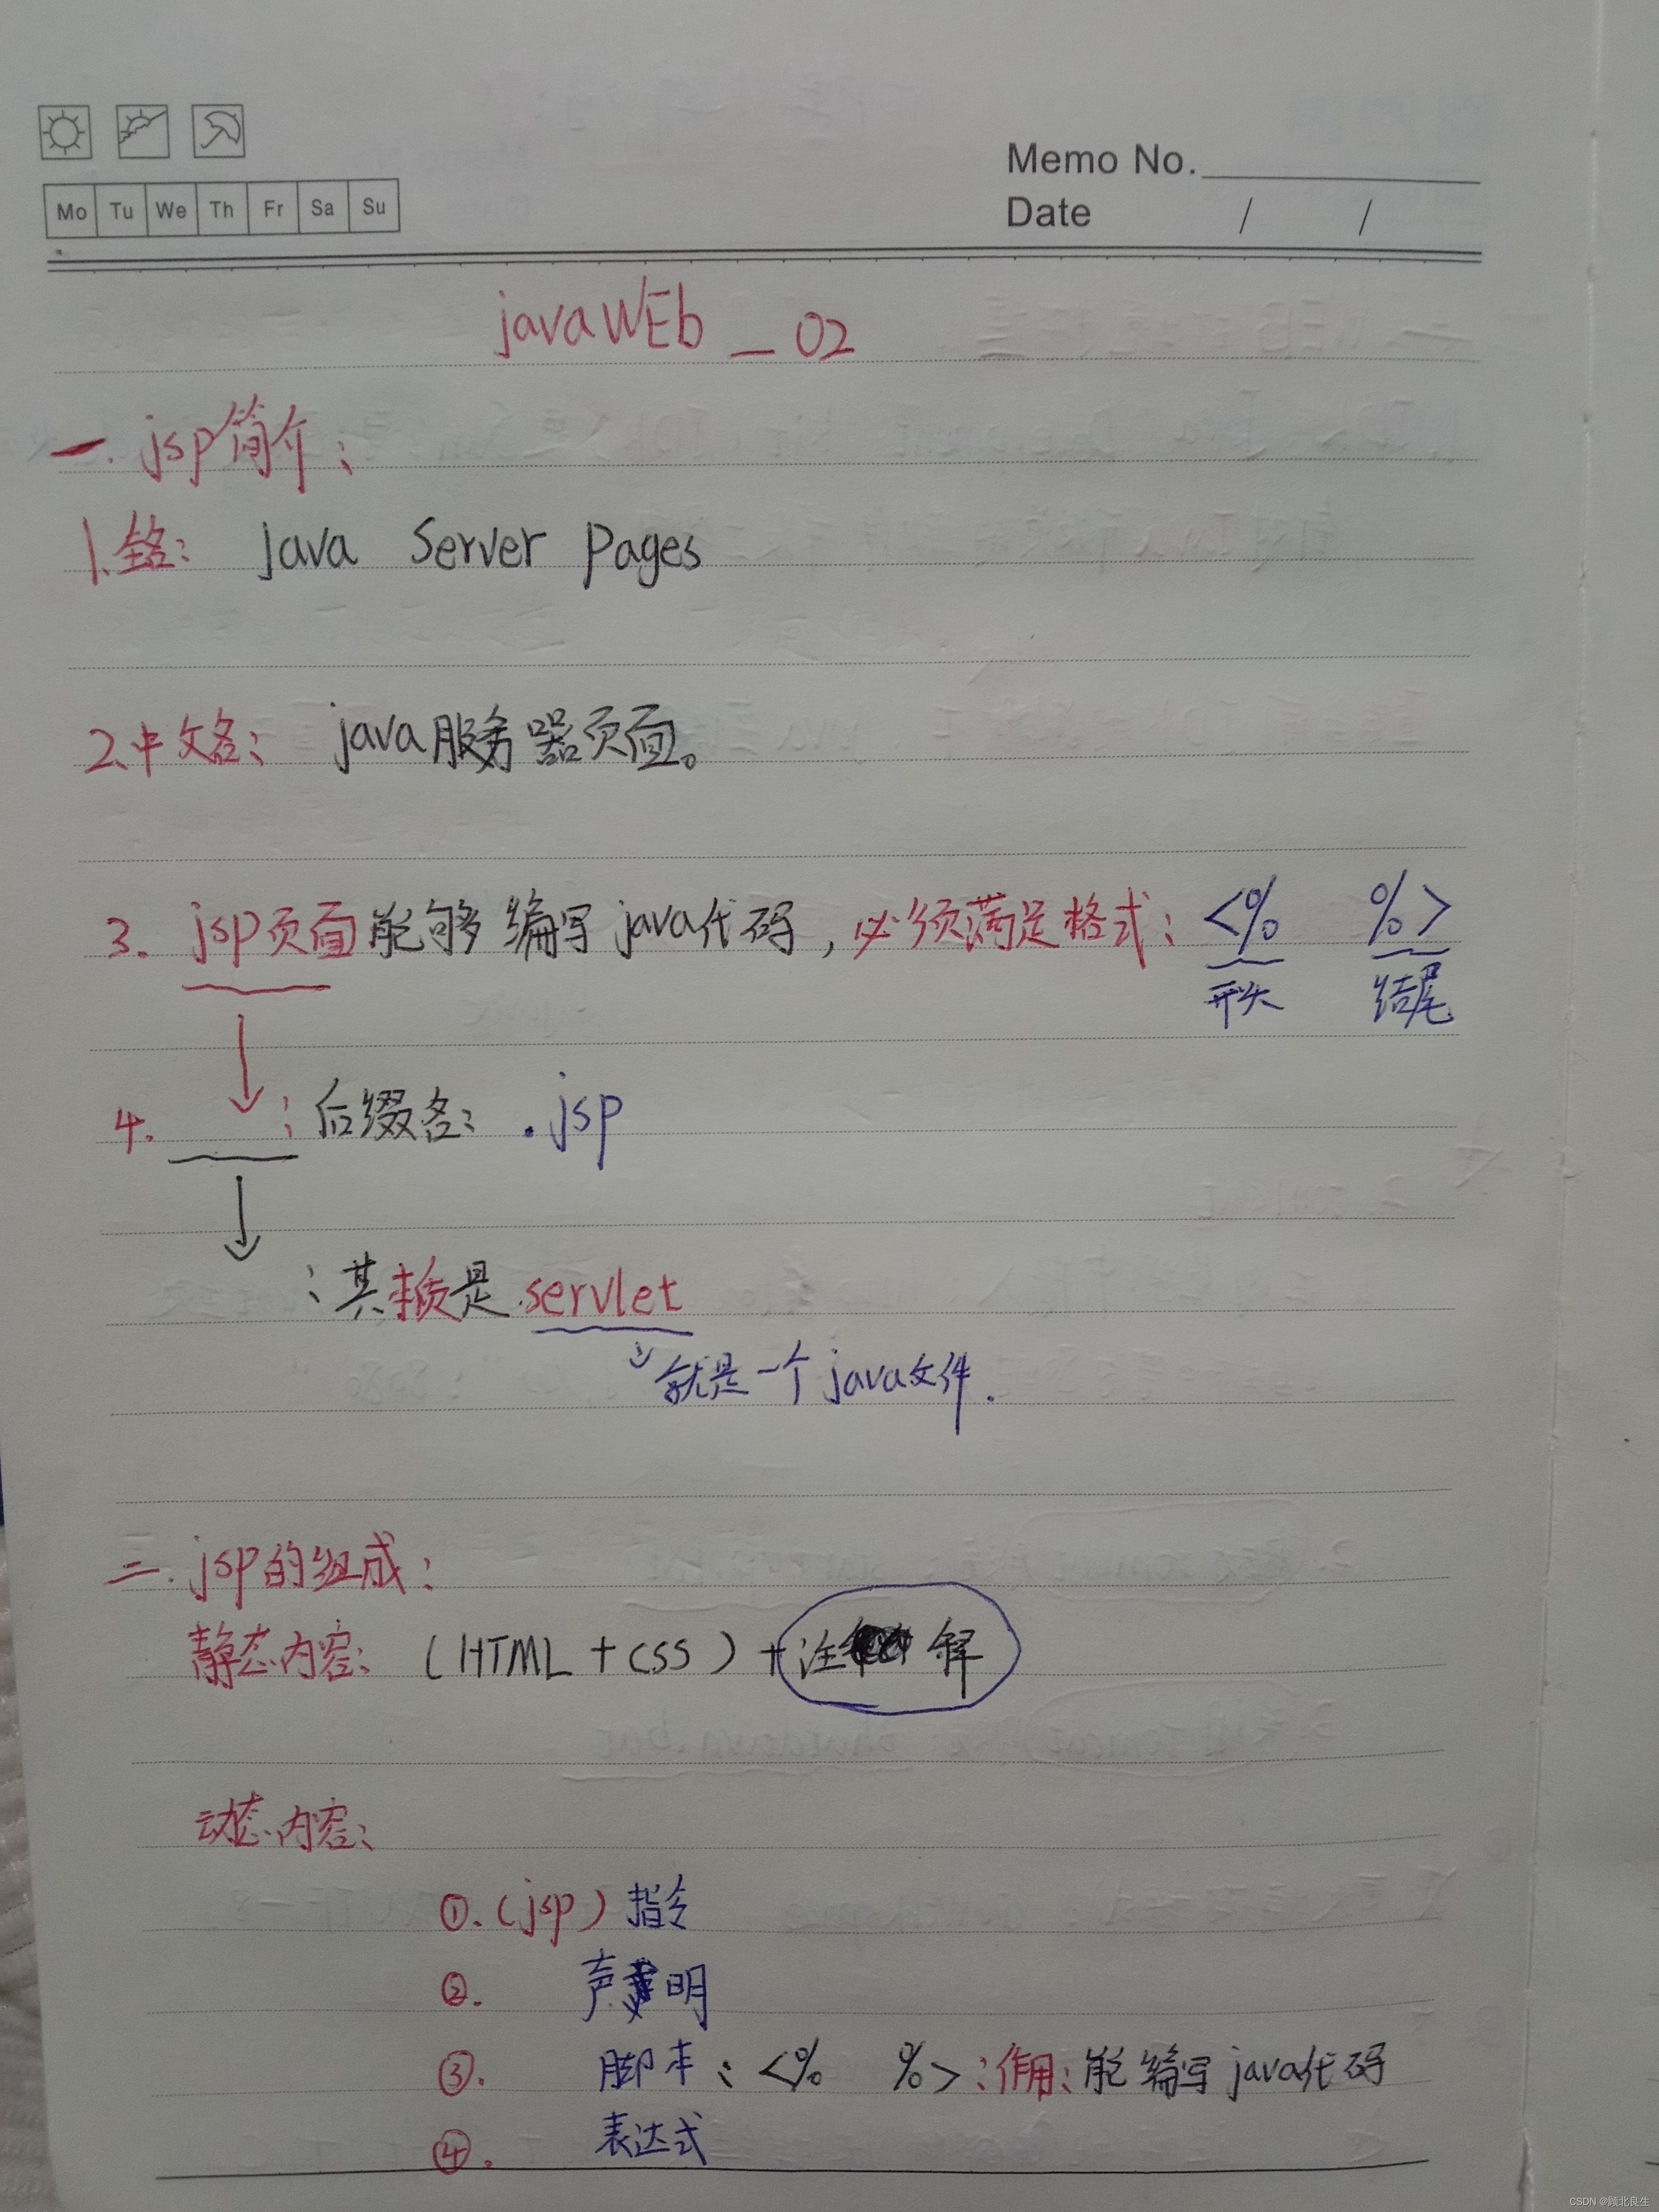 Mo Tu We Th Fr Sa Su
Memo No.
Date / /
javaWEb _ 02
一. jsp简介:
1.全名: java Server pages
2.中文名: java服务器页面。
3. jsp页面能够编写java代码,必须满足格式: <% %>
开头 结尾
4. : 后缀名: .jsp
: 其本质是 servlet
就是一个java文件.
二. jsp的组成:
静态内容: (HTML + CSS) + 注释
动态内容:
①. (jsp) 指令
②. 声明
③. 脚本: <% %> :作用: 能编写java代码
④. 表达式
CSDN @顾北良生